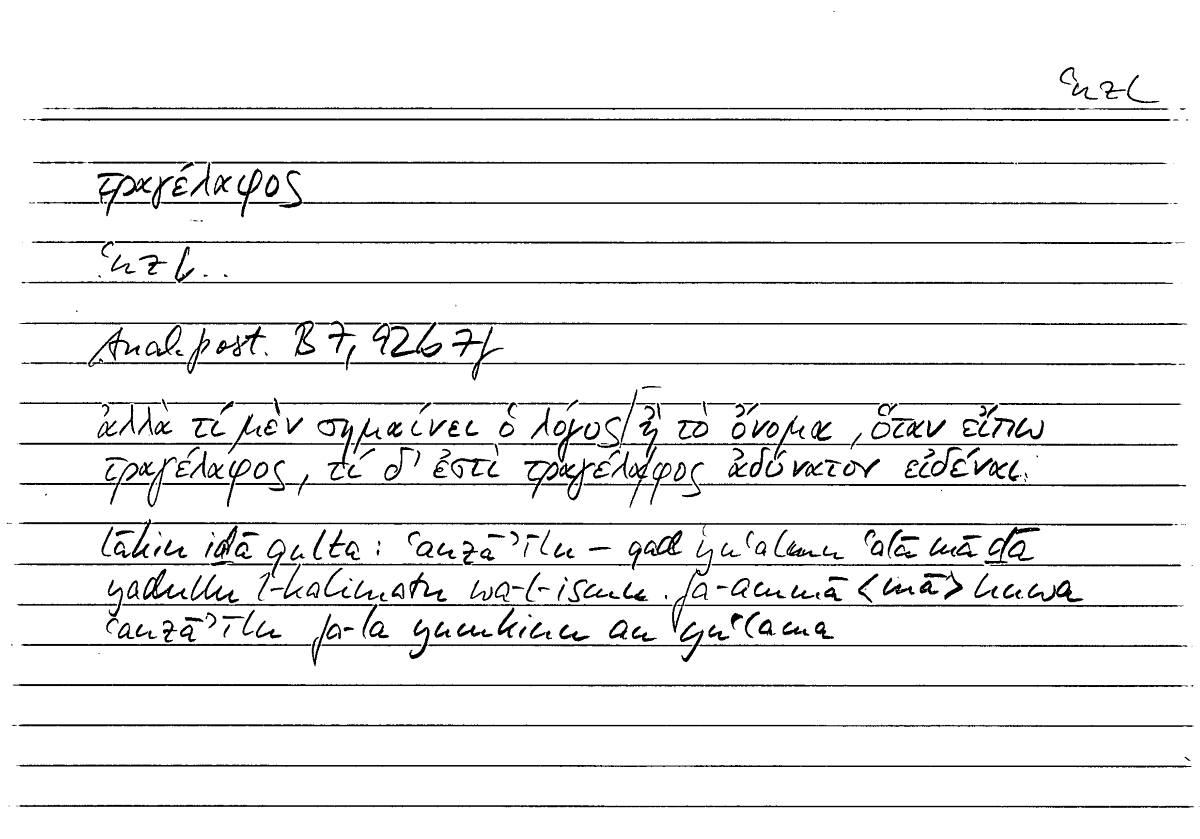 ʿnzl
τραγέλαφος
ʿnzl..
Anal. post. B 7, 92b 7f
ἀλλὰ τί μὲν σημαίνει ὁ λόγος/ἢ τὸ ὄνομα, ὅταν εἴπω
τραγέλαφος, τί δ' ἐστὶ τραγέλαφος ἀδύνατον εἰδέναι.
lākin iḏā qulta: ʿanzāʾīlu – qad yuʿlamu ʿalā mā ḏā
yadullu l-kalimatu wa-l-ismu. fa-ammā <mā> huwa
ʿanzāʾīlu fa-la yumkinu an yuʿlama